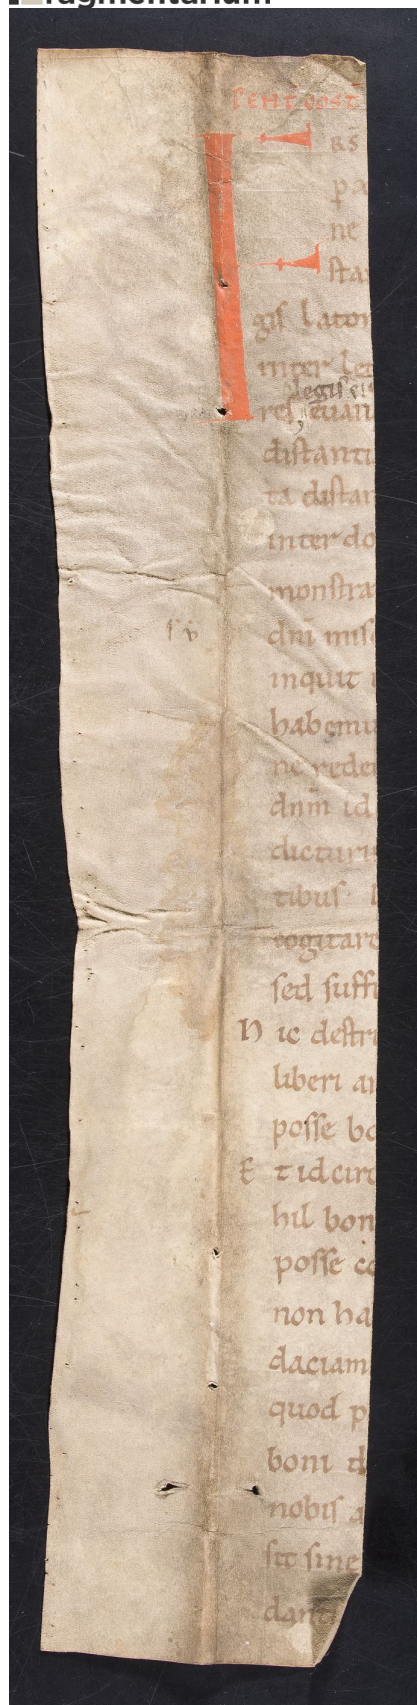 ragmentarium
pentcost
I
ırs̄
pa
ne
sta
gis lator
inter leg
legis ei
res, euan
distanti
ta distan
inter do
monstra
dn̄i mise
inquit
habemu
ne rede
dnm̄ id
dicturus
tibus
cogitare
sed suffi
N ic destru
liberi ar
posse bo
E t id circ
hil bon
posse co
non ha
daciam
quod p
boni d
nobis a
sit sine
dant